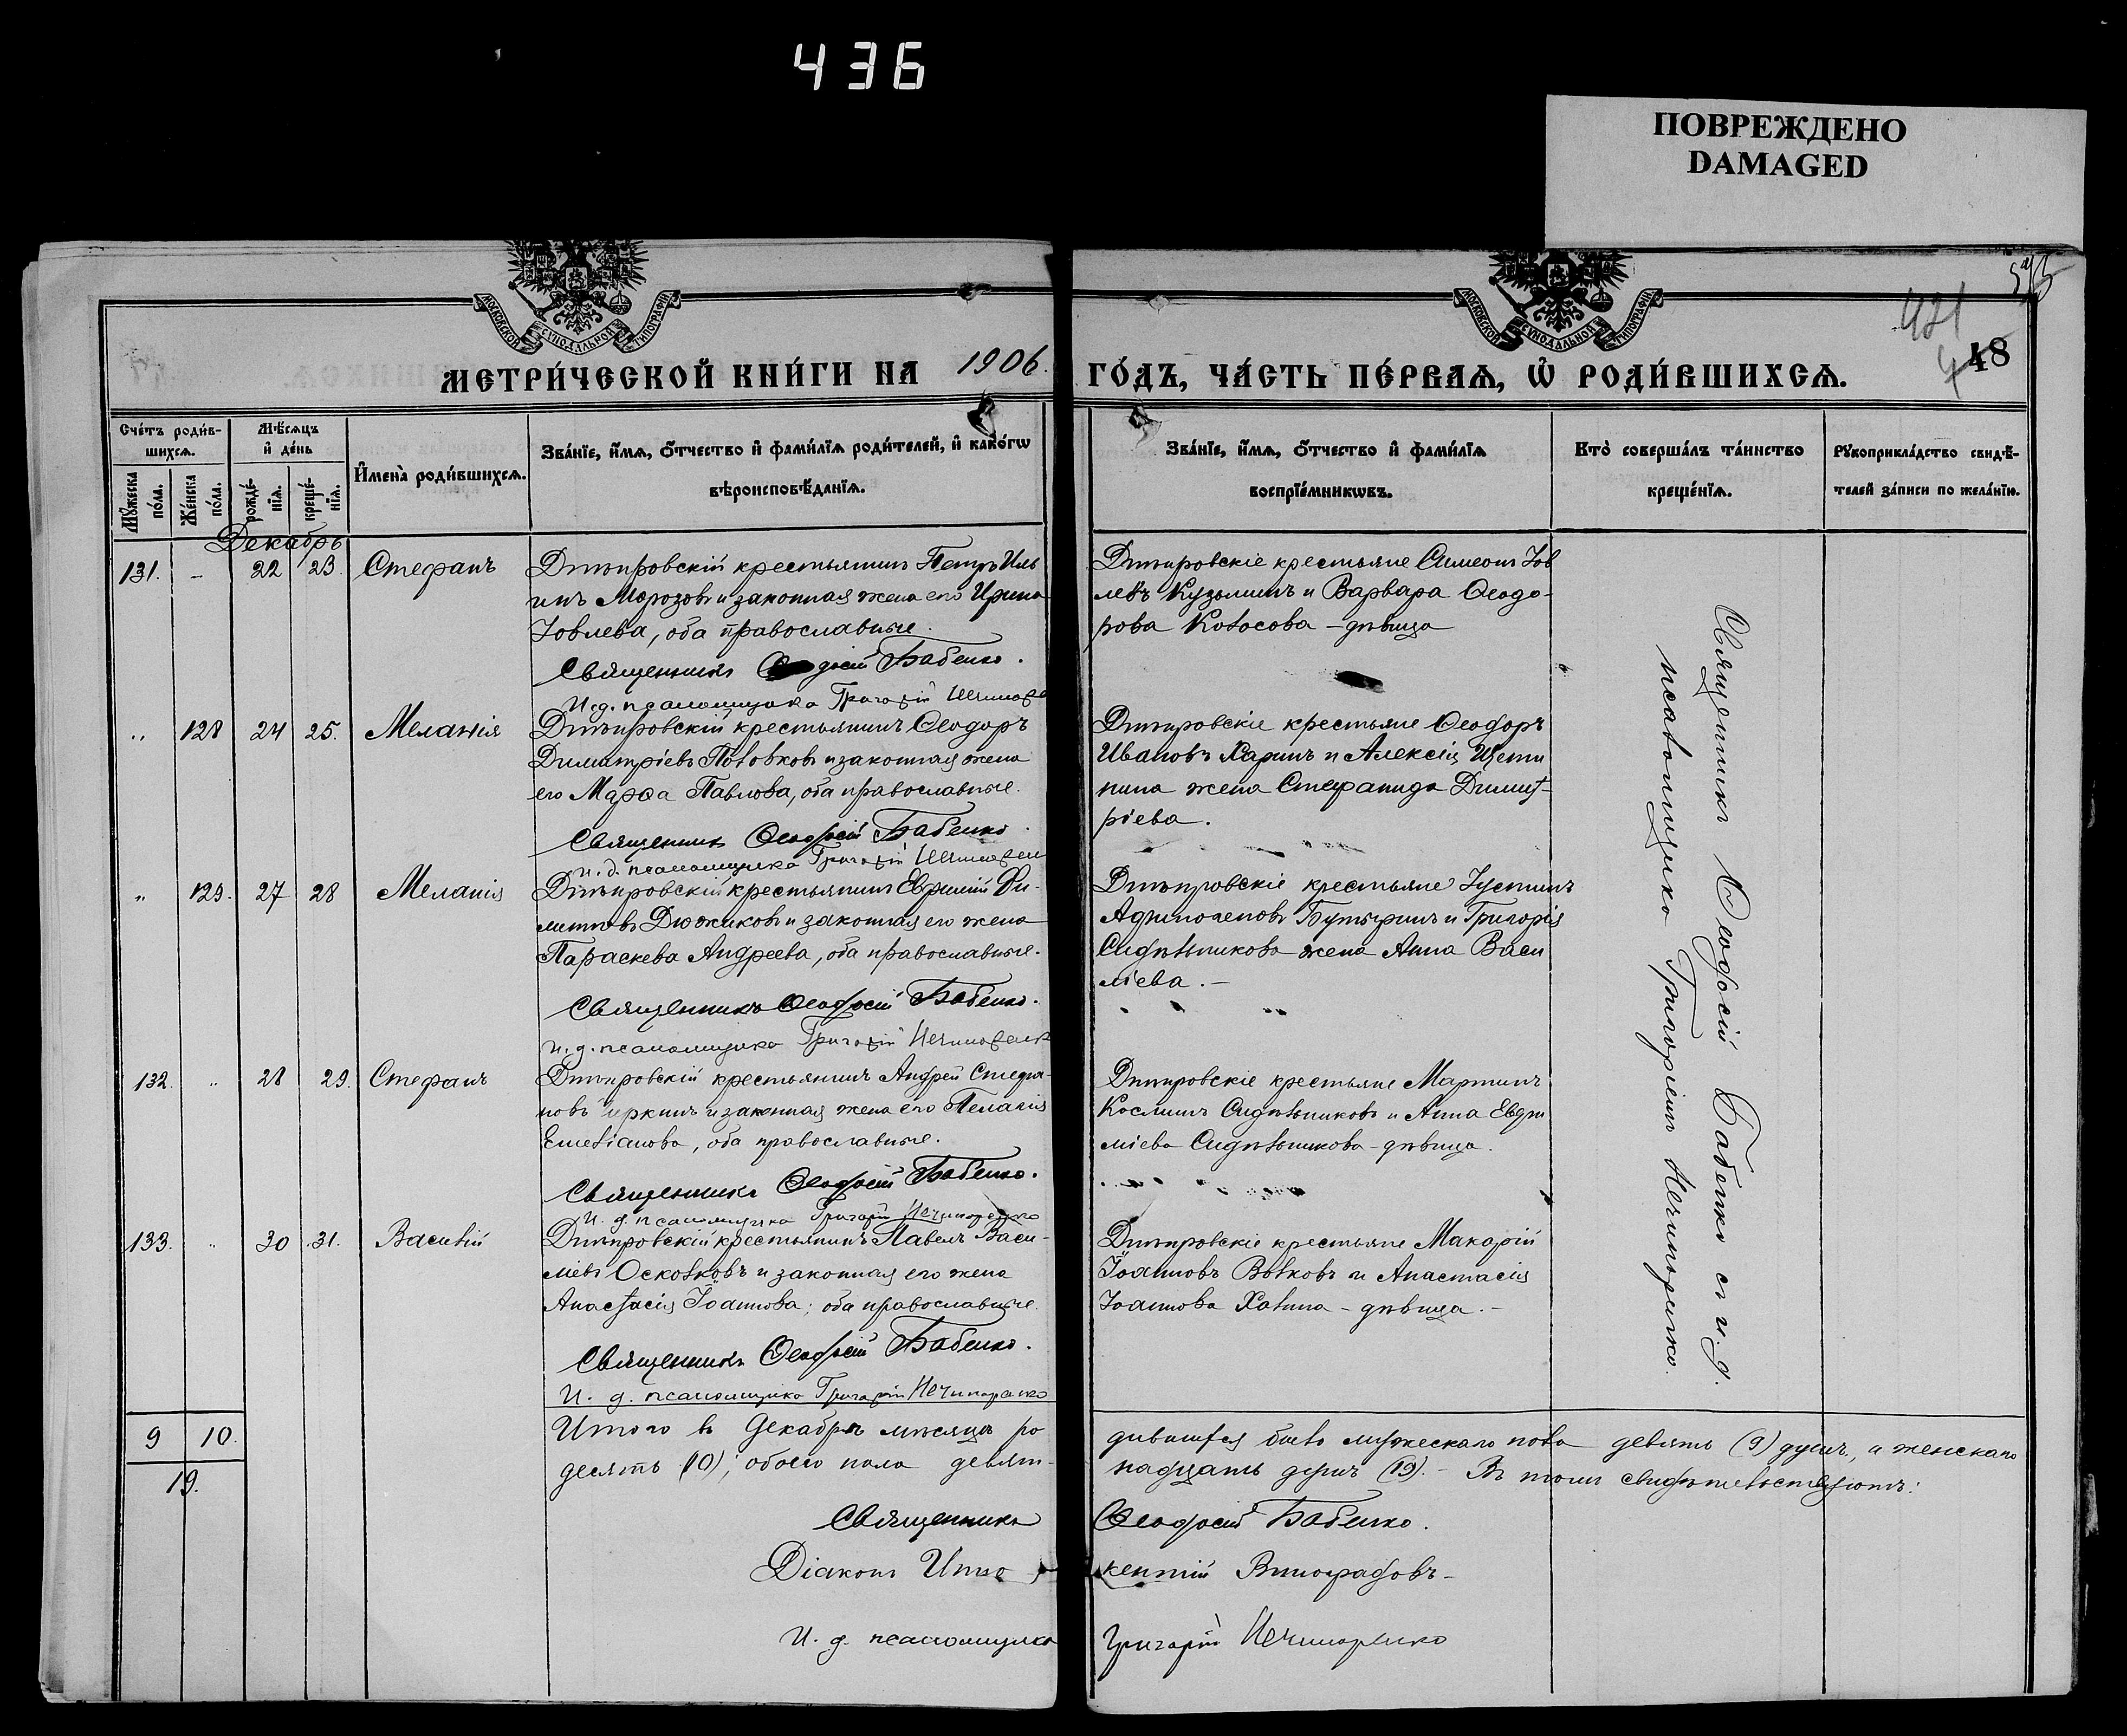 436
ПОВРЕЖДЕНО
DAMAGED
МОСКОВСКОЙ СѴНОДАЛЬНОЙ ТИПОГРАФІИ
МОСКОВСКОЙ СѴНОДАЛЬНОЙ ТИПОГРАФІИ
421
48
МЕТРИ́ЧЕСКОЙ КНИ́ГИ НА 1906. ГО́ДЪ, ЧА́СТЬ ПЕ́РВАѦ, Ѡ҆ РОДИ́ВШИХСѦ.
Сче́тъ роди́в-
шихсѧ.
Мꙋ́жеска по́ла.
Же́нска по́ла.
Мѣ́сѧцъ
и҆ де́нь
рожде́-
нїѧ.
креще́-
нїѧ.
И҆мена̀ роди́вшихсѧ.
Зва́нїе, и҆́мѧ, ѻ҆́тчество и҆ фамѝлїѧ роди́телей, и҆ како́гѡ
вѣроисповѣ́данїѧ.
Зва́нїе, и҆́мѧ, ѻ҆́тчество и҆ фами́лїѧ
воспрїе́мникѡвъ.
Кто̀ соверша́лъ та́инство
креще́нїѧ.
Рꙋкоприкла́дство свидѣ́-
телей за́писи по жела́нїю.
Декабрь
131. – 22 23. Стефанъ
Днѣпровскій крестьянинъ Петръ Иль
инъ Морозовъ и законная жена его Ирина
Іовлева, оба православные.
Священникъ Ѳеодосій Бабенко.
И. д. псаломщика Григорій
Днѣпровскіе крестьяне Симеонъ Іов
левъ Кузьминъ и Варвара Ѳеодо-
рова Колосова – дѣвица
" 128 24 25. Меланія
Днѣпровскій крестьянинъ Ѳеодоръ
Димитріевъ Половковъ и законная жена
его Марѳа Павлова, оба православные.
Священникъ Ѳеодосій Бабенко.
и. д. псаломщика Григорій
Днѣпровскіе крестьяне Ѳеодоръ
Ивановъ Харинъ и Алексія Щети
нина жена Стефанида Димит-
ріева.
" 129. 27 28 Меланія
Днѣпровскій крестьянинъ Евфимій Фи-
Дюжиковъ и законная его жена
Параскева Андреева, оба православные.
Священникъ Ѳеодосій Бабенко.
и. д. псаломщика Григорій Нечипоренк
Днѣпровскіе крестьяне Іустинъ
Бутыринъ и Григорія
Сидѣльникова жена Анна Васи
ліева. –
132. " 28 29. Стефанъ
Днѣпровскій крестьянинъ Андрей Стефа-
новъ и законная жена его Пелагія
Емеліанова, оба православные.
Священникъ Ѳеодосій Бабенко.
И. д. псаломщика Григорій Нечипоренко
Днѣпровскіе крестьяне Мартинъ
Косминъ Сидѣльниковъ и Анна Евфи
міева Сидѣльникова – дѣвица.
133. " 30 31. Василій
Днѣпровскій крестьянинъ Павелъ Васи-
ліевъ Осколковъ и законная его жена
Анастасія Іоаннова; оба православные.
Священникъ Ѳеодосій Бабенко.
И. д. псаломщика Григорій Нечипоренко
Днѣпровскіе крестьяне Макарій
Іоанновъ Волковъ и Анастасія
Іоаннова Халина – дѣвица. –
Священникъ Ѳеодосій Бабенко съ и. д.
псаломщика Григоріемъ Нечипоренко.
9 10.
19.
Итого въ Декабрѣ мѣсяцѣ ро
дившихся было мужескаго пола девять (9) душъ, а женскаго
десять (10); обоего пола девят-
надцать душъ (19). – Въ томъ свидѣтельствуютъ:
Священникъ Ѳеодосій Бабенко.
Діаконъ Инно
кентій Виноградовъ –
И. д. псаломщика Григорій Нечипоренко